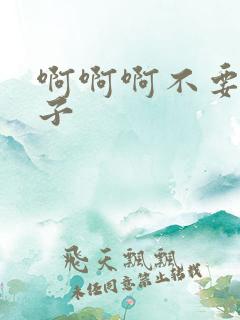 啊啊啊不要
子
飛天飄飄
未任同意禁止轉載